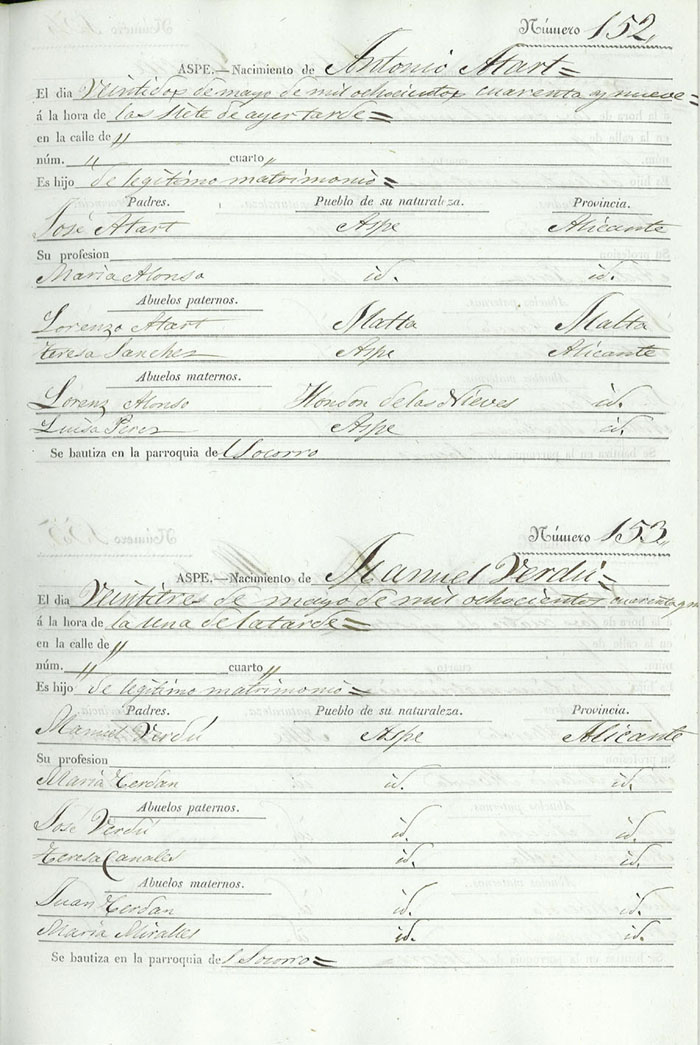 Número 152.
ASPE.—Nacimiento de Antonio Atart=
El dia Veintidos de mayo de mil ochocientos cuarenta y nueve=
á la hora de las siete de ayer tarde=
en la calle de "
núm. " cuarto "
Es hijo de legitimo matrimonio=
Padres. Pueblo de su naturaleza. Provincia.
José Atart Aspe Alicante
Su profesion
Maria Alonso id. id.
Abuelos paternos.
Lorenzo Atart Malta Malta
Teresa Sanchez Aspe Alicante
Abuelos maternos.
Lorenz Alonso Hondon de las Nieves id.
Luisa Perez Aspe id.
Se bautiza en la parroquia del Socorro
Número 153.
ASPE.—Nacimiento de Manuel Verdú=
El dia Veintitres de mayo de mil ochocientos cuarenta y
á la hora de la una de la tarde=
en la calle de "
núm. " cuarto "
Es hijo de legitimo matrimonio=
Padres. Pueblo de su naturaleza. Provincia.
Manuel Verdú Aspe Alicante
Su profesion
Maria Cerdan id. id.
Abuelos paternos.
José Verdú id. id.
Teresa Canales id. id.
Abuelos maternos.
Juan Cerdan id. id.
Maria Miralles id. id.
Se bautiza en la parroquia del Socorro=